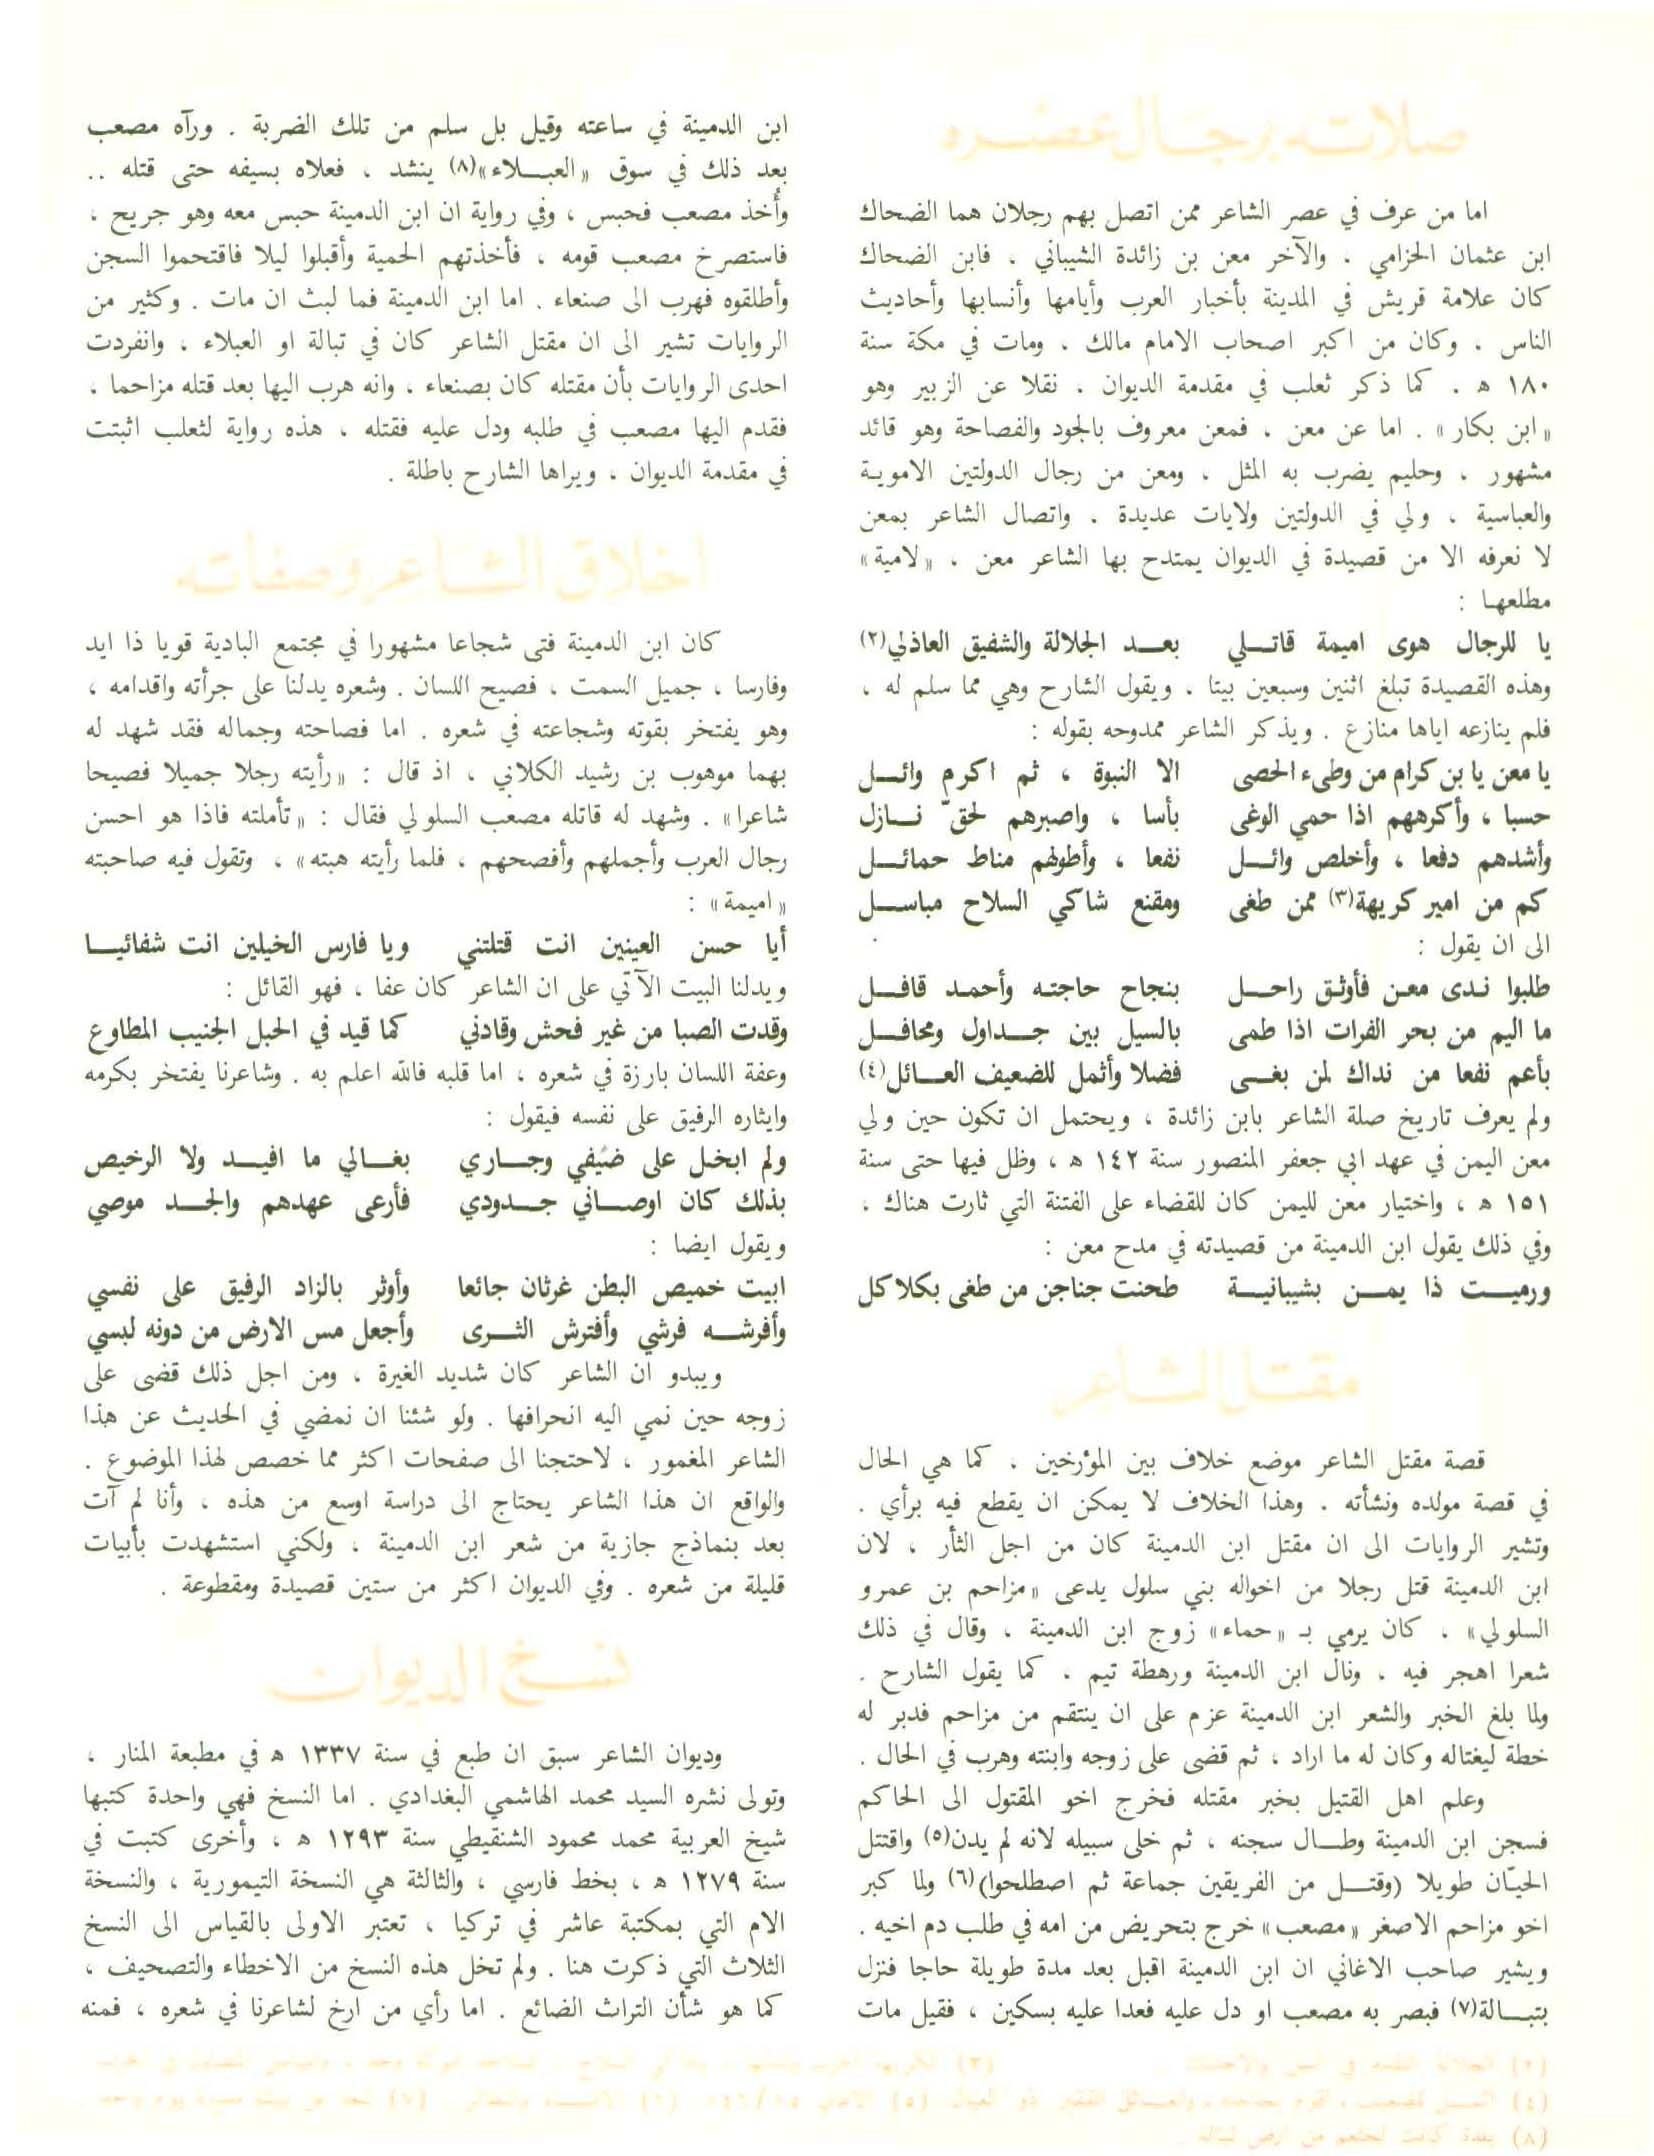 صلاته برجال عصره
اما من عرف في عصر الشاعر ممن اتصل بهم رجلان هما الضحاك
ابن عثمان الحزامي ، والآخر معن بن زائدة الشيباني ، فابن الضحاك
كان علامة قريش في المدينة بأخبار العرب وأيامها وأنسابها وأحاديث
الناس ، وكان من اكبر اصحاب الامام مالك ، ومات في مكة سنة
١٨٠ ه . كما ذكر ثعلب في مقدمة الديوان ، نقلا عن الزبير وهو
«ابن بكار» . اما عن معن ، فمعن معروف بالجود والفصاحة وهو قائد
مشهور ، وحليم يضرب به المثل ، ومعن من رجال الدولتين الاموية
والعباسية ، ولي في الدولتين ولايات عديدة . واتصال الشاعر بمعن
لا نعرفه الا من قصيدة في الديوان يمتدح بها الشاعر معن ، «لامية»
مطلعها :
يا للرجال هوى اميمة قاتلي بعد الجلالة والشفيق العاذلي(٢)
وهذه القصيدة تبلغ اثنين وسبعين بيتا ، ويقول الشارح وهي مما سلم له ،
فلم ينازعه اياها منازع . ويذكر الشاعر ممدوحه بقوله :
يا معن يا بن كرام من وطىء الحصى الا النبوة ، ثم اكرم وائل
حسبا ، وأكرههم اذا حمي الوغى بأسا ، واصبرهم لحقّ نازل
وأشدهم دفعا ، وأخلص وائل نفعا ، وأطولهم مناط حمائل
كم من امير كريهة(٣) ممن طغى ومقنع شاكي السلاح مباسل
الى ان يقول :
طلبوا ندى معن فأوثق راحل بنجاح حاجته وأحمد قافل
ما اليم من بحر الفرات اذا طمى بالسيل بين جداول ومحافل
بأعم نفعا من نداك لمن بغى فضلا وأثمل للضعيف العائل(٤)
ولم يعرف تاريخ صلة الشاعر بابن زائدة ، ويحتمل ان تكون حين ولي
معن اليمن في عهد ابي جعفر المنصور سنة ١٤٢ ه ، وظل فيها حتى سنة
١٥١ ه ، واختيار معن لليمن كان للقضاء على الفتنة التي ثارت هناك ،
وفي ذلك يقول ابن الدمينة من قصيدته في مدح معن :
ورميت ذا يمن بشيبانية طحنت جناجن من طغى بكلاكل
مقتل الشاعر
قصة مقتل الشاعر موضع خلاف بين المؤرخين ، كما هي الحال
في قصة مولده ونشأته . وهذا الخلاف لا يمكن ان يقطع فيه برأي .
وتشير الروايات الى ان مقتل ابن الدمينة كان من اجل الثأر ، لان
ابن الدمينة قتل رجلا من اخواله بني سلول يدعى «مزاحم بن عمرو
السلولي» ، كان يرمي بـ «حماء» زوج ابن الدمينة ، وقال في ذلك
شعرا اهجر فيه ، ونال ابن الدمينة ورهطة تيم ، كما يقول الشارح .
ولما بلغ الخبر والشعر ابن الدمينة عزم على ان ينتقم من مزاحم فدبر له
خطة ليغتاله وكان له ما اراد ، ثم قضى على زوجه وابنته وهرب في الحال .
وعلم اهل القتيل بخبر مقتله فخرج اخو المقتول الى الحاكم
فسجن ابن الدمينة وطال سجنه ، ثم خلى سبيله لانه لم يدن(٥) واقتتل
الحيّان طويلا (وقتل من الفريقين جماعة ثم اصطلحوا)(٦) ولما كبر
اخو مزاحم الاصغر «مصعب» خرج بتحريض من امه في طلب دم اخيه .
ويشير صاحب الاغاني ان ابن الدمينة اقبل بعد مدة طويلة حاجا فنزل
بتبالة(٧) فبصر به مصعب او دل عليه فعدا عليه بسكين ، فقيل مات
ابن الدمينة في ساعته وقيل بل سلم من تلك الضربة . ورآه مصعب
بعد ذلك في سوق «العبلاء»(٨) ينشد ، فعلاه بسيفه حتى قتله ..
وأُخذ مصعب فحبس ، وفي رواية ان ابن الدمينة حبس معه وهو جريح ،
فاستصرخ مصعب قومه ، فأخذتهم الحمية وأقبلوا ليلا فاقتحموا السجن
وأطلقوه فهرب الى صنعاء . اما ابن الدمينة فما لبث ان مات . وكثير من
الروايات تشير الى ان مقتل الشاعر كان في تبالة او العبلاء ، وانفردت
احدى الروايات بأن مقتله كان بصنعاء ، وانه هرب اليها بعد قتله مزاحما ،
فقدم اليها مصعب في طلبه ودل عليه فقتله ، هذه رواية لثعلب اثبتت
في مقدمة الديوان ، ويراها الشارح باطلة .
اخلاق الشاعر وصفاته
كان ابن الدمينة فتى شجاعا مشهورا في مجتمع البادية قويا ذا ايد
وفارسا ، جميل السمت ، فصيح اللسان . وشعره يدلنا على جرأته واقدامه ،
وهو يفتخر بقوته وشجاعته في شعره . اما فصاحته وجماله فقد شهد له
بهما موهوب بن رشيد الكلاني ، اذ قال : «رأيته رجلا جميلا فصيحا
شاعرا» . وشهد له قاتله مصعب السلولي فقال : «تأملته فاذا هو احسن
رجال العرب وأجملهم وأفصحهم ، فلما رأيته هبته» ، وتقول فيه صاحبته
«اميمة» :
أيا حسن العينين انت قتلتني ويا فارس الخيلين انت شفائيا
ويدلنا البيت الآتي على ان الشاعر كان عفا ، فهو القائل :
وقدت الصبا من غير فحش وقادني كما قيد في الحبل الجنيب المطاوع
وعفة اللسان بارزة في شعره ، اما قلبه فالله اعلم به . وشاعرنا يفتخر بكرمه
وايثاره الرفيق على نفسه فيقول :
ولم ابخل على ضيفي وجاري بغالي ما افيد ولا الرخيص
بذلك كان اوصاني جدودي فأرعى عهدهم والجد موصي
ويقول ايضا :
ابيت خميص البطن غرثان جائعا وأوثر بالزاد الرفيق على نفسي
وأفرشه فرشي وأفترش الثرى وأجعل مس الارض من دونه لبسي
ويبدو ان الشاعر كان شديد الغيرة ، ومن اجل ذلك قضى على
زوجه حين نمي اليه انحرافها . ولو شئنا ان نمضي في الحديث عن هذا
الشاعر المغمور ، لاحتجنا الى صفحات اكثر مما خصص لهذا الموضوع .
والواقع ان هذا الشاعر يحتاج الى دراسة اوسع من هذه ، وأنا لم آت
بعد بنماذج جازية من شعر ابن الدمينة ، ولكني استشهدت بأبيات
قليلة من شعره . وفي الديوان اكثر من ستين قصيدة ومقطوعة .
نسخ الديوان
وديوان الشاعر سبق ان طبع في سنة ١٣٣٧ ه في مطبعة المنار ،
وتولى نشره السيد محمد الهاشمي البغدادي . اما النسخ فهي واحدة كتبها
شيخ العربية محمد محمود الشنقيطي سنة ١٢٩٣ ه ، وأخرى كتبت في
سنة ١٢٧٩ ه ، بخط فارسي ، والثالثة هي النسخة التيمورية ، والنسخة
الام التي بمكتبة عاشر في تركيا ، تعتبر الاولى بالقياس الى النسخ
الثلاث التي ذكرت هنا . ولم تخل هذه النسخ من الاخطاء والتصحيف ،
كما هو شأن التراث الضائع . اما رأي من ارخ لشاعرنا في شعره ، فمنه